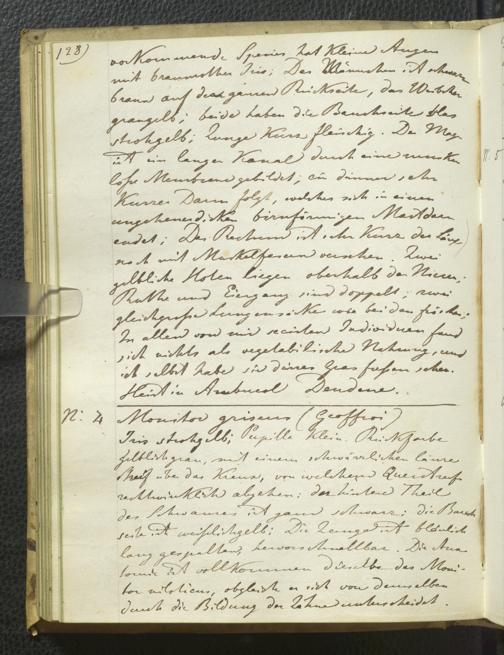 128)
vorkommende Species hat kleine Augen
mit braunrother Iris; Das Männchen ist schwarz
braun auf der ganzen Rückseite, das Weibchen
graugelb; beide haben die Bauchseite blas
strohgelb; Zunge kurz fleischig. Der Mag
ist ein langer Kanal durch eine muskel
lose Membrane gebildet, ein dünner sehr
kurzer Darm folgt, welcher sich in einen
ungeheuer dicken birnförmigen Mastdarm
endet; Das Rectum ist sehr kurz der Länge
nach mit Muskelfasern versehen. Zwei
gelbliche Hoten liegen oberhalb der Nieren;
Ruthe und Eingang sind doppelt; zwei
gleichgrosse Lungensäcke wie bei den Frösche;
In allen von mir secirten Individuen fand
sich nichts als vegetabilische Nahrung, und
ich selbst habe sie dürres Gras fressen sehen.
Heist in Ambucol Dendene.
N: 4 Monitor griseus (Geoffroi)
Iris strohgelb; Pupille klein. Rückfarbe
gelblichgrau, mit einem schwärzlichen
Streif über das Kreuz, von welchem Querstreif
rechtwinklich abgehen; der hintere Theil
des Schwanzes ist ganz schwarz; die Bauch
seite ist weisslichgelb; Die Zunge ist bläulich
lang gespalten, hervorschnellbar. Die Ana
tomie ist vollkommen dieselbe des Moni-
tor niloticus, obgleich er sich von demselben
durch die Bildung der Zähne unterscheidet.